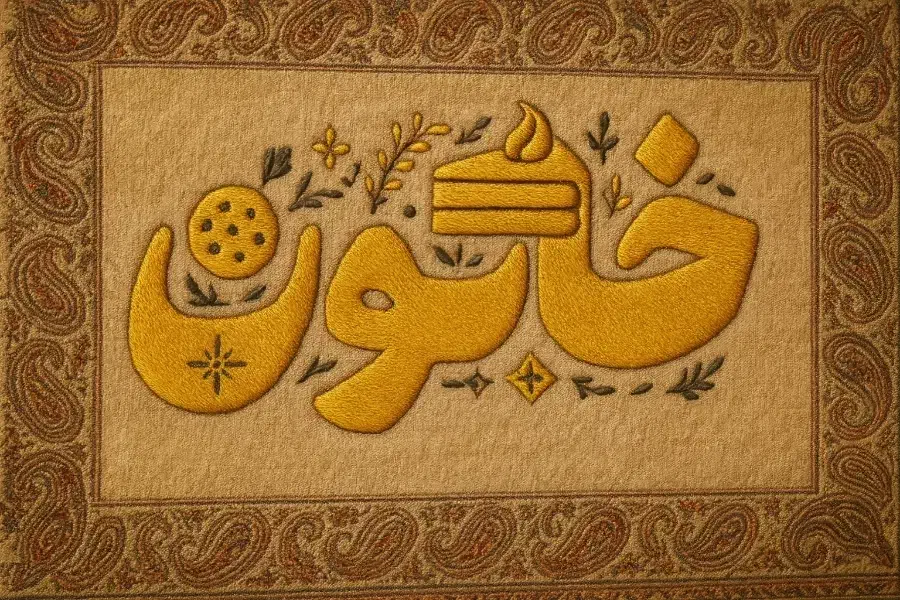 خاتون